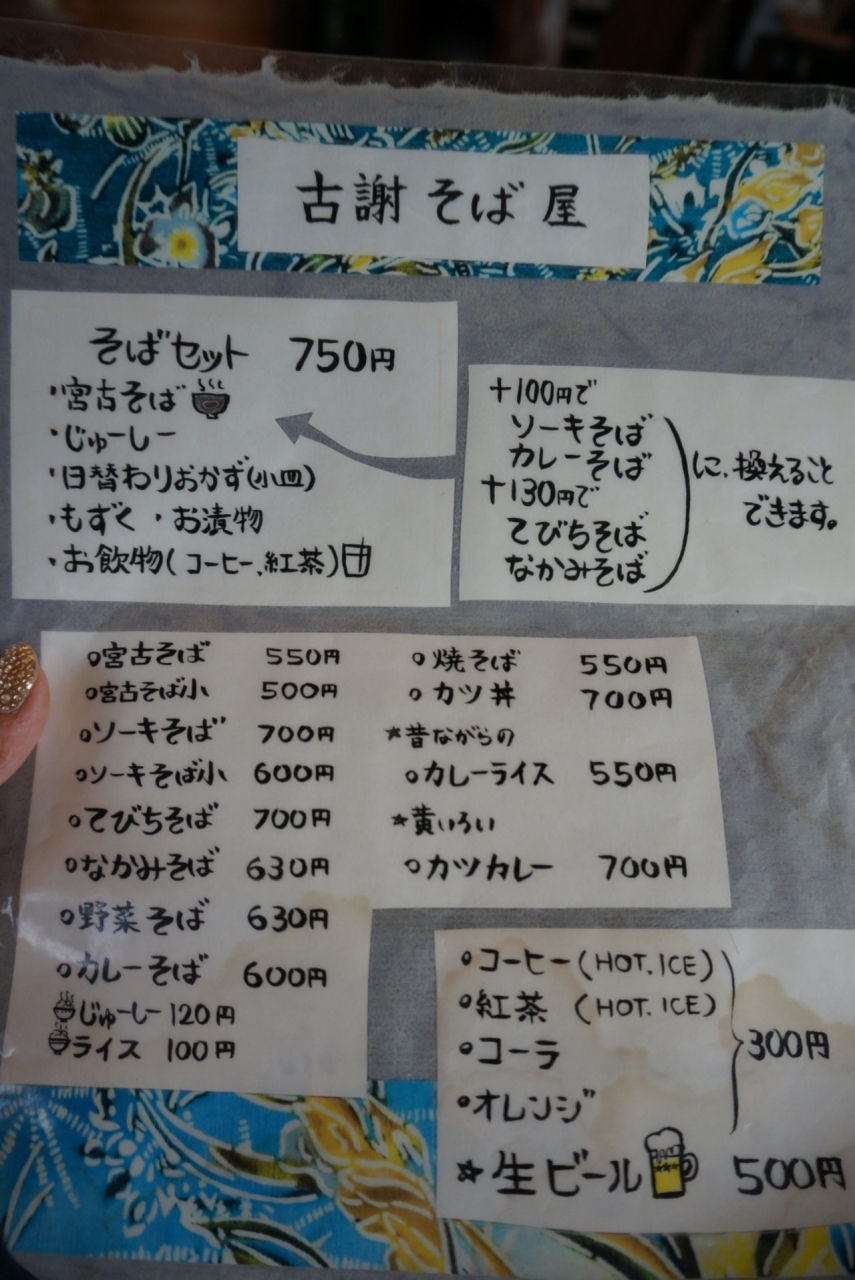 古謝そば屋
そばセット 750円
・宮古そば
・じゅーしー
・日替わりおかず(小皿)
・もずく ・お漬物
・お飲物(コーヒー、紅茶)
+100円で
ソーキそば
カレーそば
+130円で
てびちそば
なかみそば
に、換えること
できます。
○宮古そば 550円
○宮古そば小 500円
○ソーキそば 700円
○ソーキそば小 600円
○てびちそば 700円
○なかみそば 630円
○野菜そば 630円
○カレーそば 600円
じゅーしー 120円
ライス 100円
○焼そば 550円
○カツ丼 700円
★昔ながらの
○カレーライス 550円
★黄いろい
○カツカレー 700円
●コーヒー(HOT.ICE)
●紅茶 (HOT.ICE)
●コーラ
●オレンジ
300円
★生ビール 500円